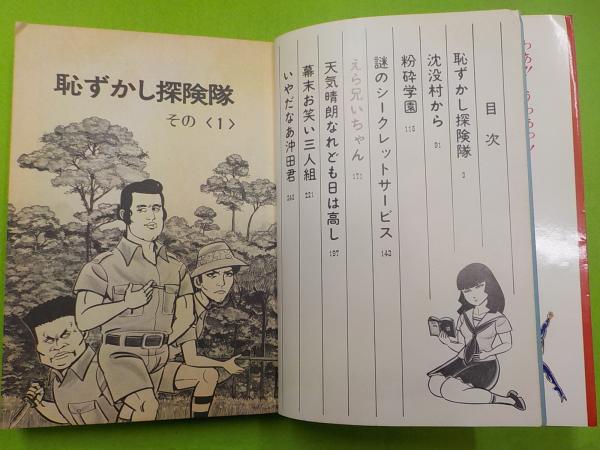 恥ずかし探険隊
その〈1〉
目次
恥ずかし探険隊 3
沈没村から 91
粉砕学園 115
謎のシークレットサービス 143
えら兄いちゃん 171
天気晴朗なれども日は高し 197
幕末お笑い三人組 221
いやだなあ沖田君 243